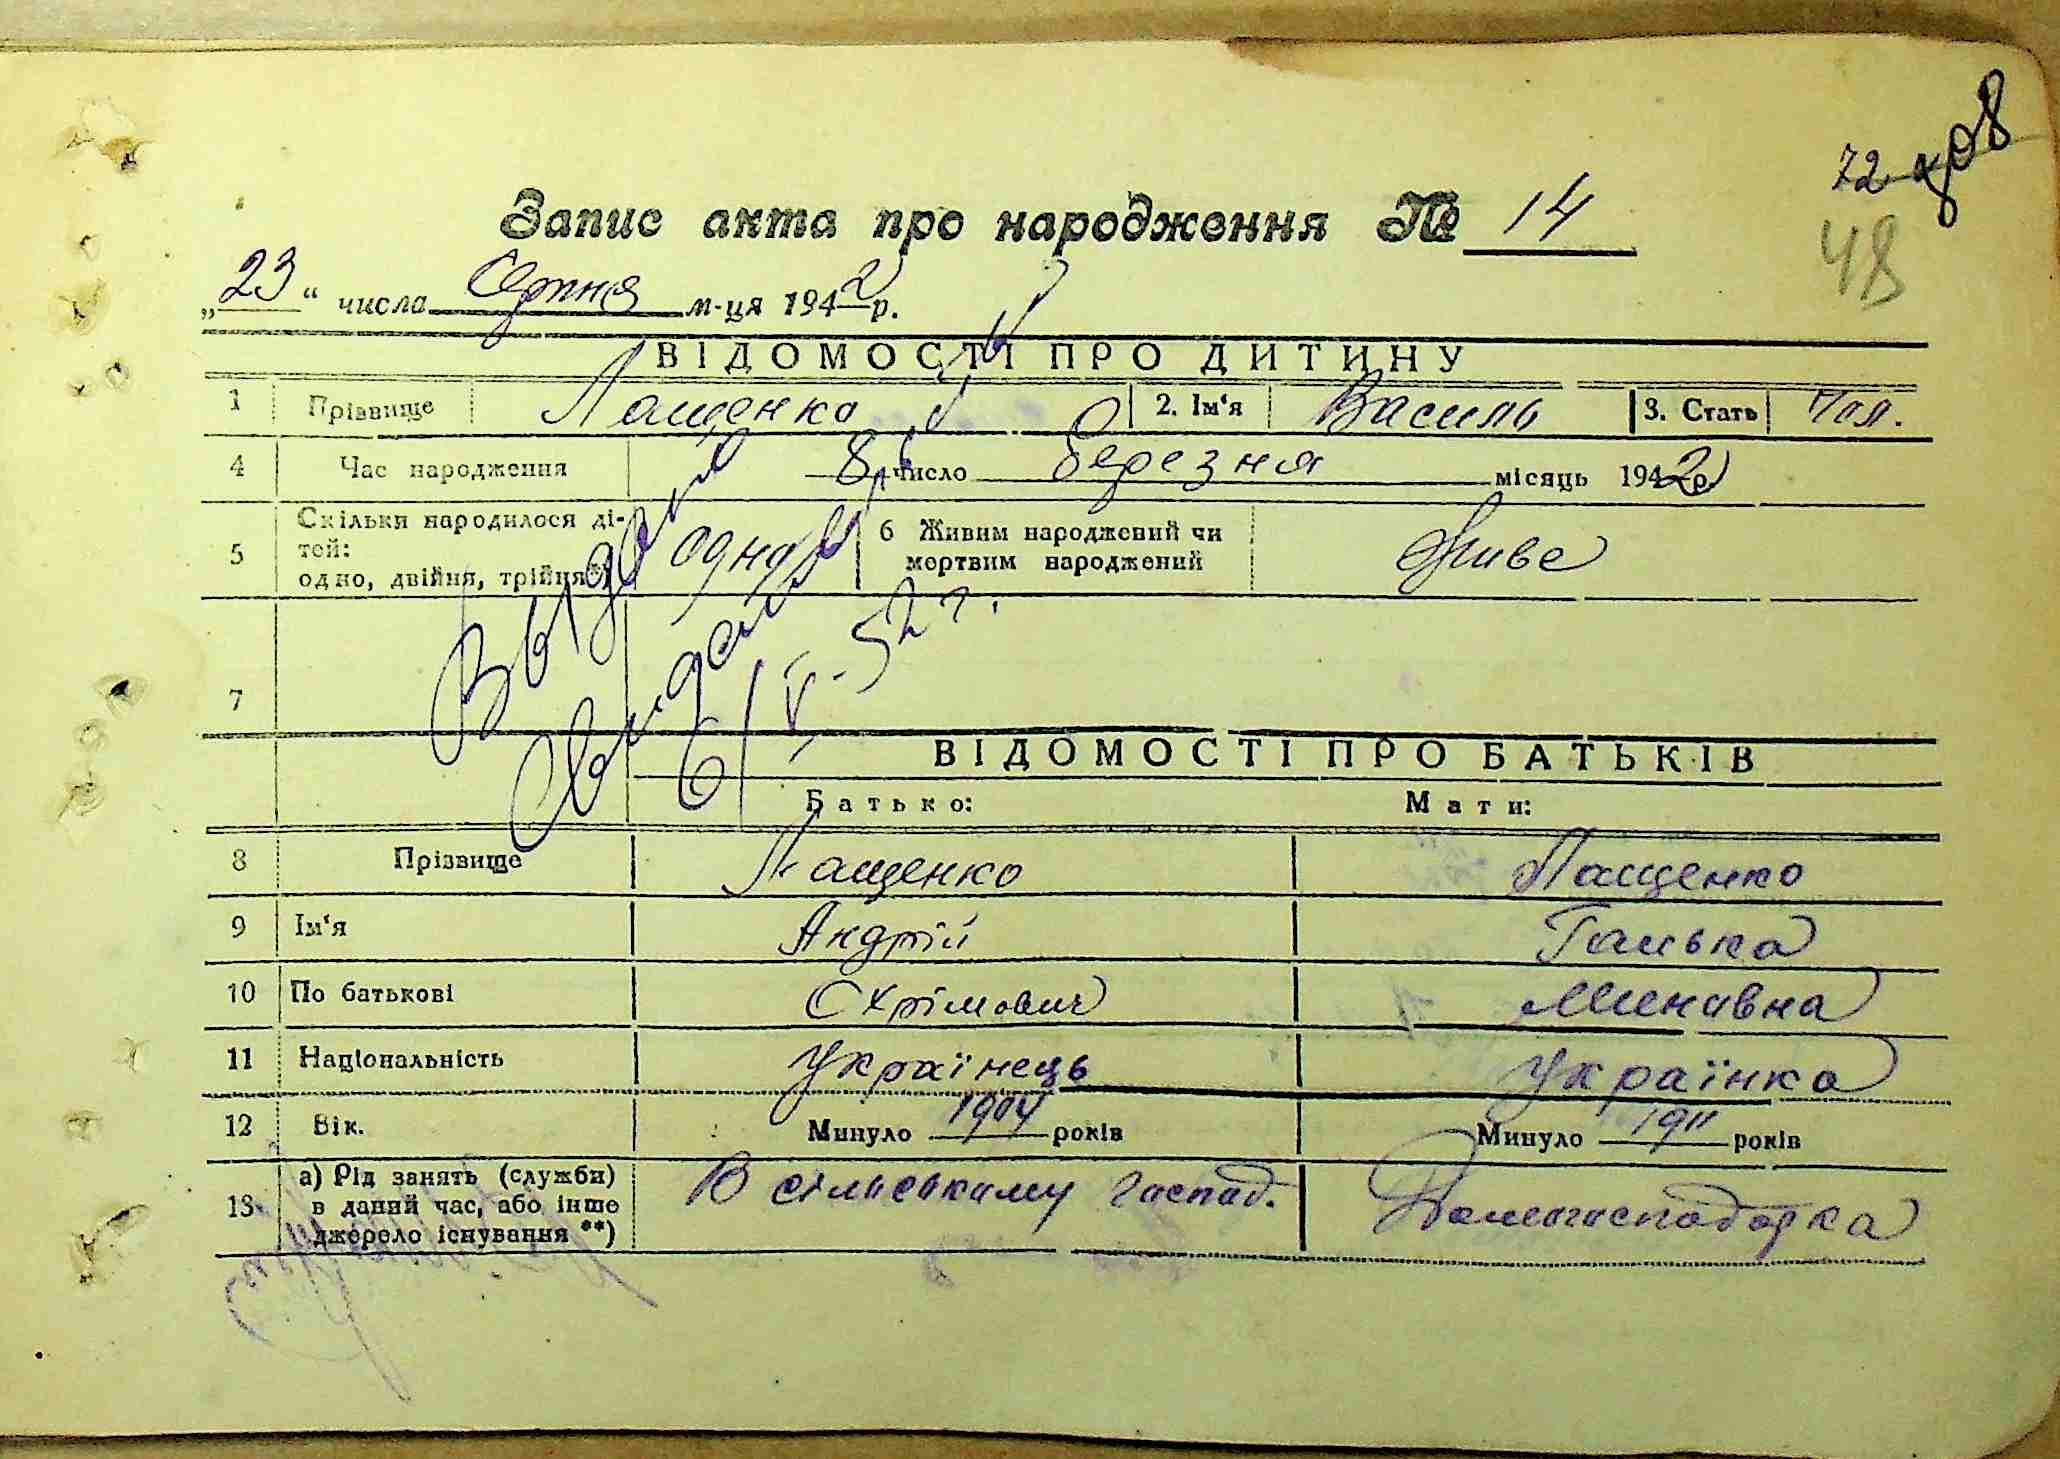 72
48
Запис акта про народження № 14
„23“ числа Серпня м-ця 1942 р.
ВІДОМОСТІ ПРО ДИТИНУ
1 Прізвище Лащенко 2. Ім‘я Василь 3. Стать Чол.
4 Час народження 8 число березня місяць 1942 р.
5 Скільки народилося ді-
тей:
одно, двійня, трійня*) одна 6 Живим народжений чи
мертвим народжений живе
Выдано
6/V-52 г.
7
ВІДОМОСТІ ПРО БАТЬКІВ
Батько: Мати:
8 Прізвище Лащенко Лащенко
9 Ім‘я Андрій Ганька
10 По батькові Охрімович Минавна
11 Національність Українець Українка
12 Вік. Минуло 1904 років Минуло 1911 років
13 а) Рід занять (служби)
в даний час, або інше
джерело існування **) В сільському господ. Домогосподарка